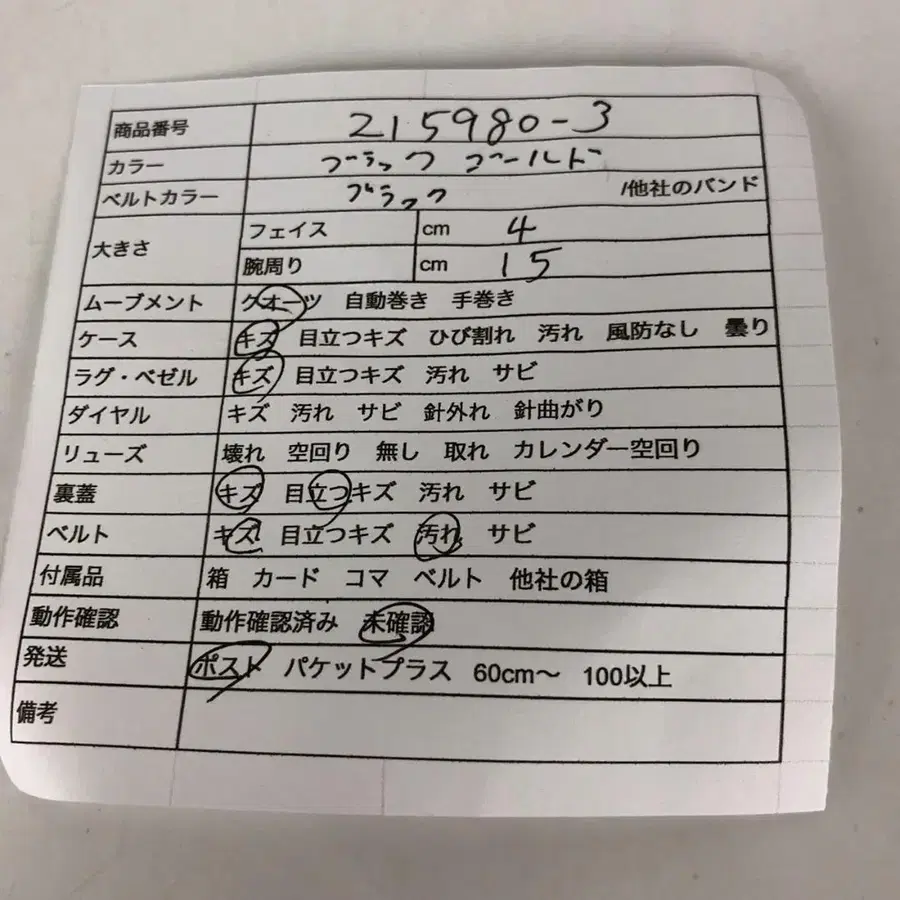 商品番号 215980-3
カラー ブラック ゴールド
ベルトカラー ブラック /他社のバンド
大きさ フェイス cm 4
腕周り cm 15
ムーブメント クオーツ 自動巻き 手巻き
ケース キズ 目立つキズ ひび割れ 汚れ 風防なし 曇り
ラグ・ベゼル キズ 目立つキズ 汚れ サビ
ダイヤル キズ 汚れ サビ 針外れ 針曲がり
リューズ 壊れ 空回り 無し 取れ カレンダー空回り
裏蓋 キズ 目立つキズ 汚れ サビ
ベルト キズ 目立つキズ 汚れ サビ
付属品 箱 カード コマ ベルト 他社の箱
動作確認 動作確認済み 未確認
発送 ポスト パケットプラス 60cm〜 100以上
備考